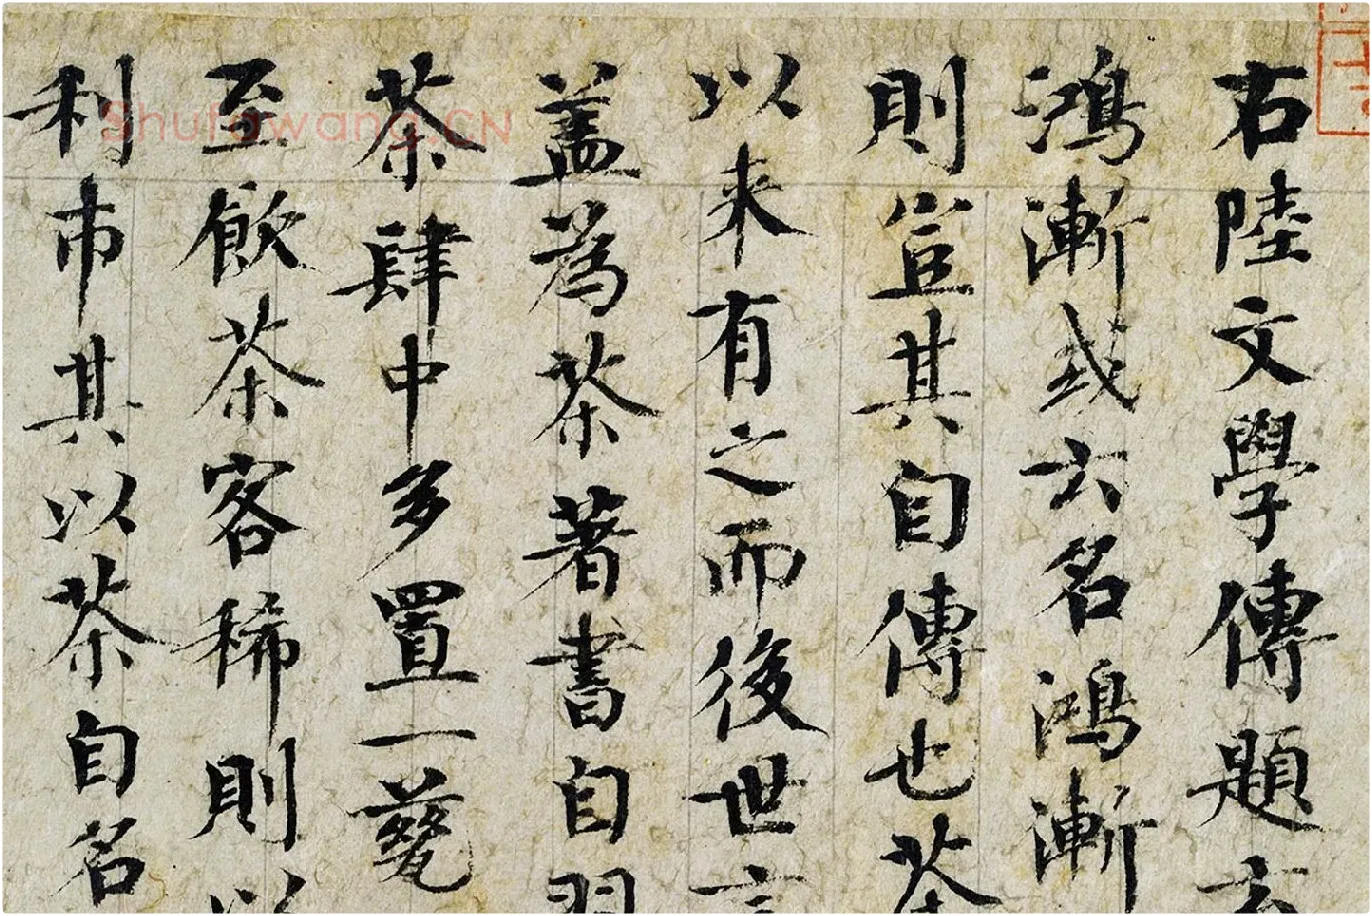 右陸文學傳題云
鴻漸或云名鴻漸
則豈其自傳也茶
以来有之而後世言
盖為茶著書自羽
茶肆中多置一甆
至飲茶客稀則以
利市其以茶自名
Shufawang.CN